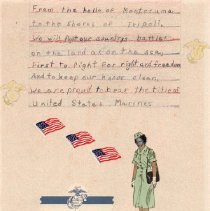 From the halls of Montezuma
to the shores of Tripoli
We will fight our country's battles
on the land as on the sea,
First to fight for right and freedom
And to keep our honor clean,
We are proud to bear the title of
United States Marines